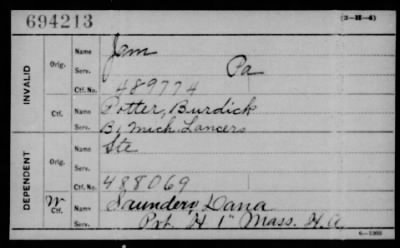 694213
(3-H-4)
INVALID
Orig.
Name Jam
Serv. Pa
Ctf. No. 489774
Ctf.
Name Potter, Burdick
Serv. B, Mich. Lancers
DEPENDENT
Orig.
Name Ste
Serv.
Ctf. No. 488069
W Ctf.
Name Saunders, Dana
Serv. Pvt. H 1" Mass. H.A.